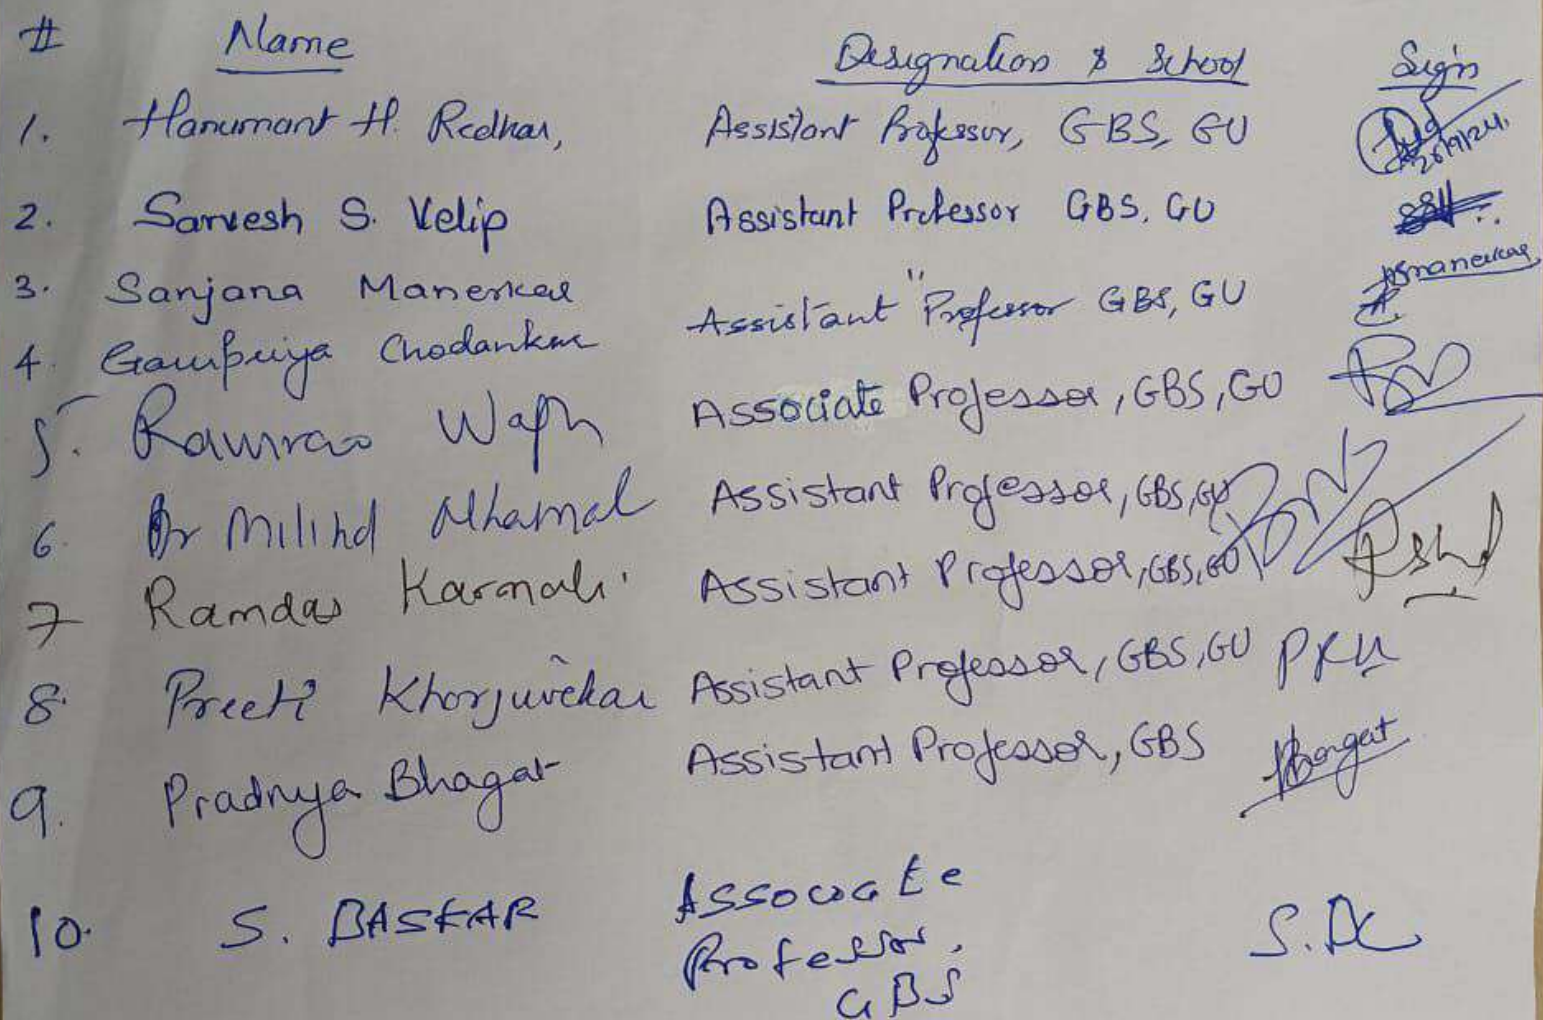 # Name Designation & School Sign
1. Hanumant H. Redkar, Assistant Professor, GBS, GU 26/9/24.
2. Sarvesh S. Velip Assistant Professor GBS, GU
3. Sanjana Manerkar " psmanerkar
4. Gauripriya Chodankar Assistant Professor GBS, GU
5. Ramrao Wagh Associate Professor, GBS, GU
6. Dr Milind Mhamal Assistant Professor, GBS, GU
7 Ramdas Karmali Assistant Professor, GBS, GU
8. Preeti Khorjuvekar Assistant Professor, GBS, GU PKU
9. Pradnya Bhagat Assistant Professor, GBS Bhagat
10. S. BASKAR Associate
Professor,
GBS